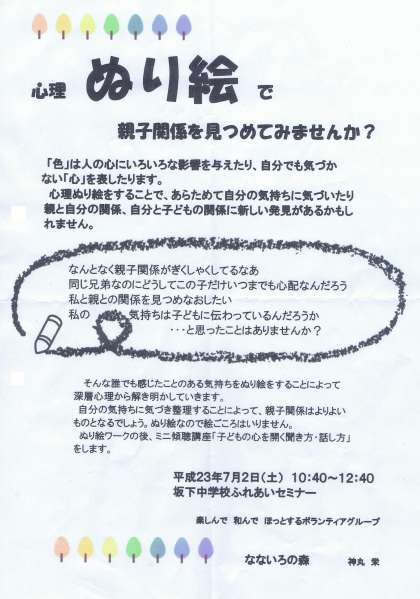 心理 ぬり絵 で
親子関係を見つめてみませんか？
「色」は人の心にいろいろな影響を与えたり、自分でも気づか
ない「心」を表したりします。
心理ぬり絵をすることで、あらためて自分の気持ちに気づいたり
親と自分の関係、自分と子どもの関係に新しい発見があるかもし
れません。
なんとなく親子関係がぎくしゃくしてるなあ
同じ兄弟なのにどうしてこの子だけいつまでも心配なんだろう
私と親との関係を見つめなおしたい
私の 気持ちは子どもに伝わっているんだろうか
・・・と思ったことはありませんか？
そんな誰でも感じたことのある気持ちをぬり絵をすることによって
深層心理から解き明かしていきます。
自分の気持ちに気づき整理することによって、親子関係はよりよい
ものとなるでしょう。ぬり絵なので絵ごころはいりません。
ぬり絵ワークの後、ミニ傾聴講座「子どもの心を開く聞き方・話し方」
をします。
平成23年7月2日（土） 10：40～12：40
坂下中学校ふれあいセミナー
楽しんで 和んで ほっとするボランティアグループ
なないろの森 神丸 栄